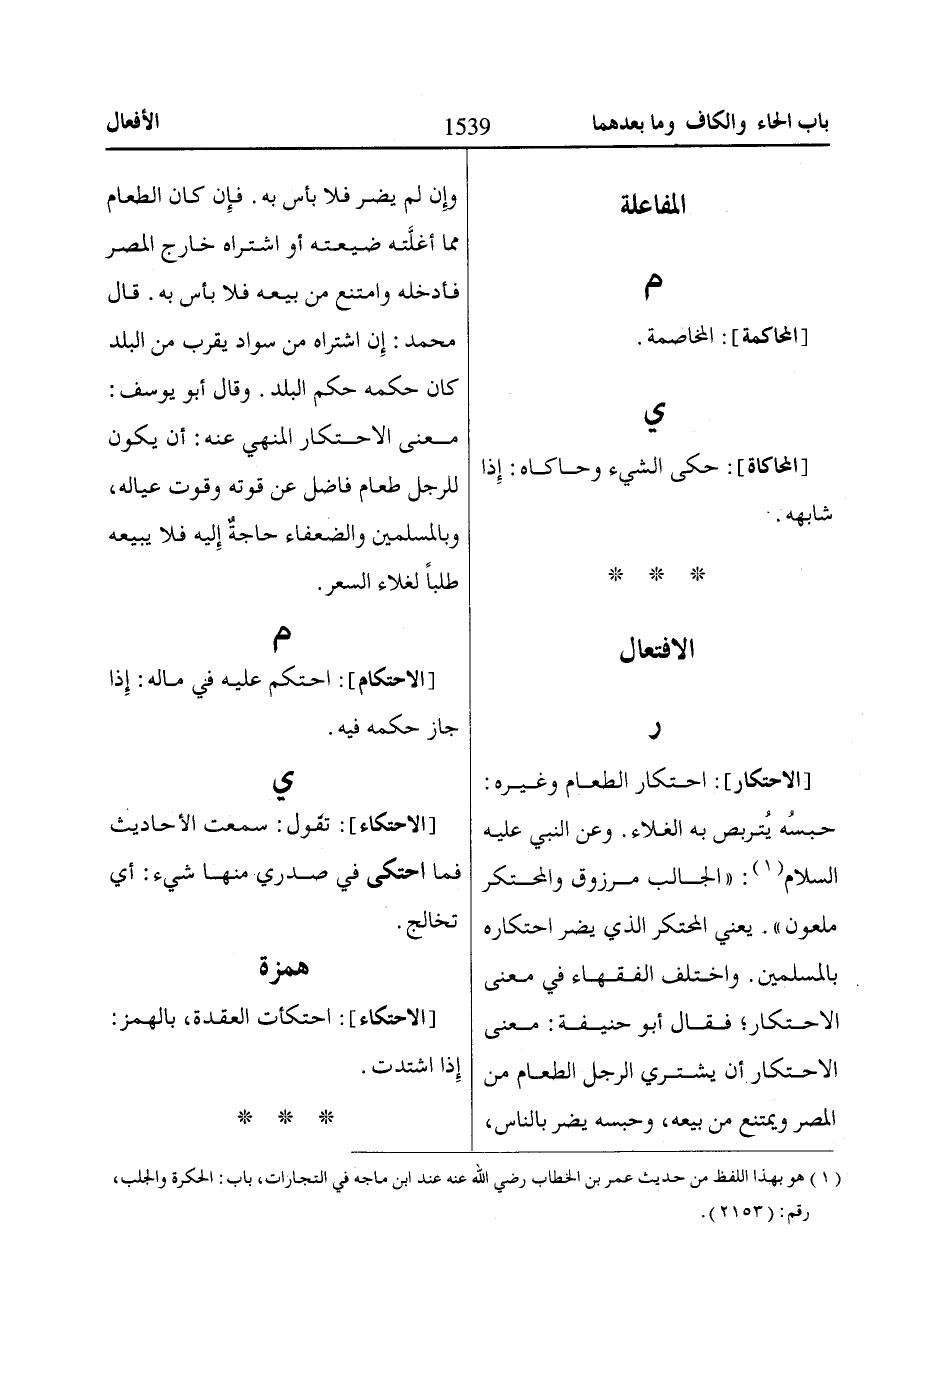 باب الحاء والكاف وما بعدهما
1539
الأفعال
المفاعلة
م
[المحاكمة]: المخاصمة.
ي
[المحاكاة]: حكى الشيء وحاكاه: إذا
شابهه.
* * *
الافتعال
ر
[الاحتكار]: احتكار الطعام وغيره:
حبسُه يُتربص به الغلاء. وعن النبي عليه
السلام(١): «الجالب مرزوق والمحتكر
ملعون». يعني المحتكر الذي يضر احتكاره
بالمسلمين. واختلف الفقهاء في معنى
الاحتكار؛ فقال أبو حنيفة: معنى
الاحتكار أن يشتري الرجل الطعام من
المصر ويمتنع من بيعه، وحبسه يضر بالناس،
وإن لم يضر فلا بأس به. فإن كان الطعام
مما أغلَّته ضيعته أو اشتراه خارج المصر
فأدخله وامتنع من بيعه فلا بأس به. قال
محمد: إن اشتراه من سواد يقرب من البلد
كان حكمه حكم البلد. وقال أبو يوسف:
معنى الاحتكار المنهي عنه: أن يكون
للرجل طعام فاضل عن قوته وقوت عياله،
وبالمسلمين والضعفاء حاجةٌ إليه فلا يبيعه
طلباً لغلاء السعر.
م
[الاحتكام]: احتكم عليه في ماله: إذا
جاز حكمه فيه.
ي
[الاحتكاء]: تقول: سمعت الأحاديث
فما احتكى في صدري منها شيء: أي
تخالج.
همزة
[الاحتكاء]: احتكأت العقدة، بالهمز:
إذا اشتدت.
* * *
(١) هو بهذا اللفظ من حديث عمر بن الخطاب رضي الله عنه عند ابن ماجه في التجارات، باب: الحكرة والجلب،
رقم: (٢١٥٣).